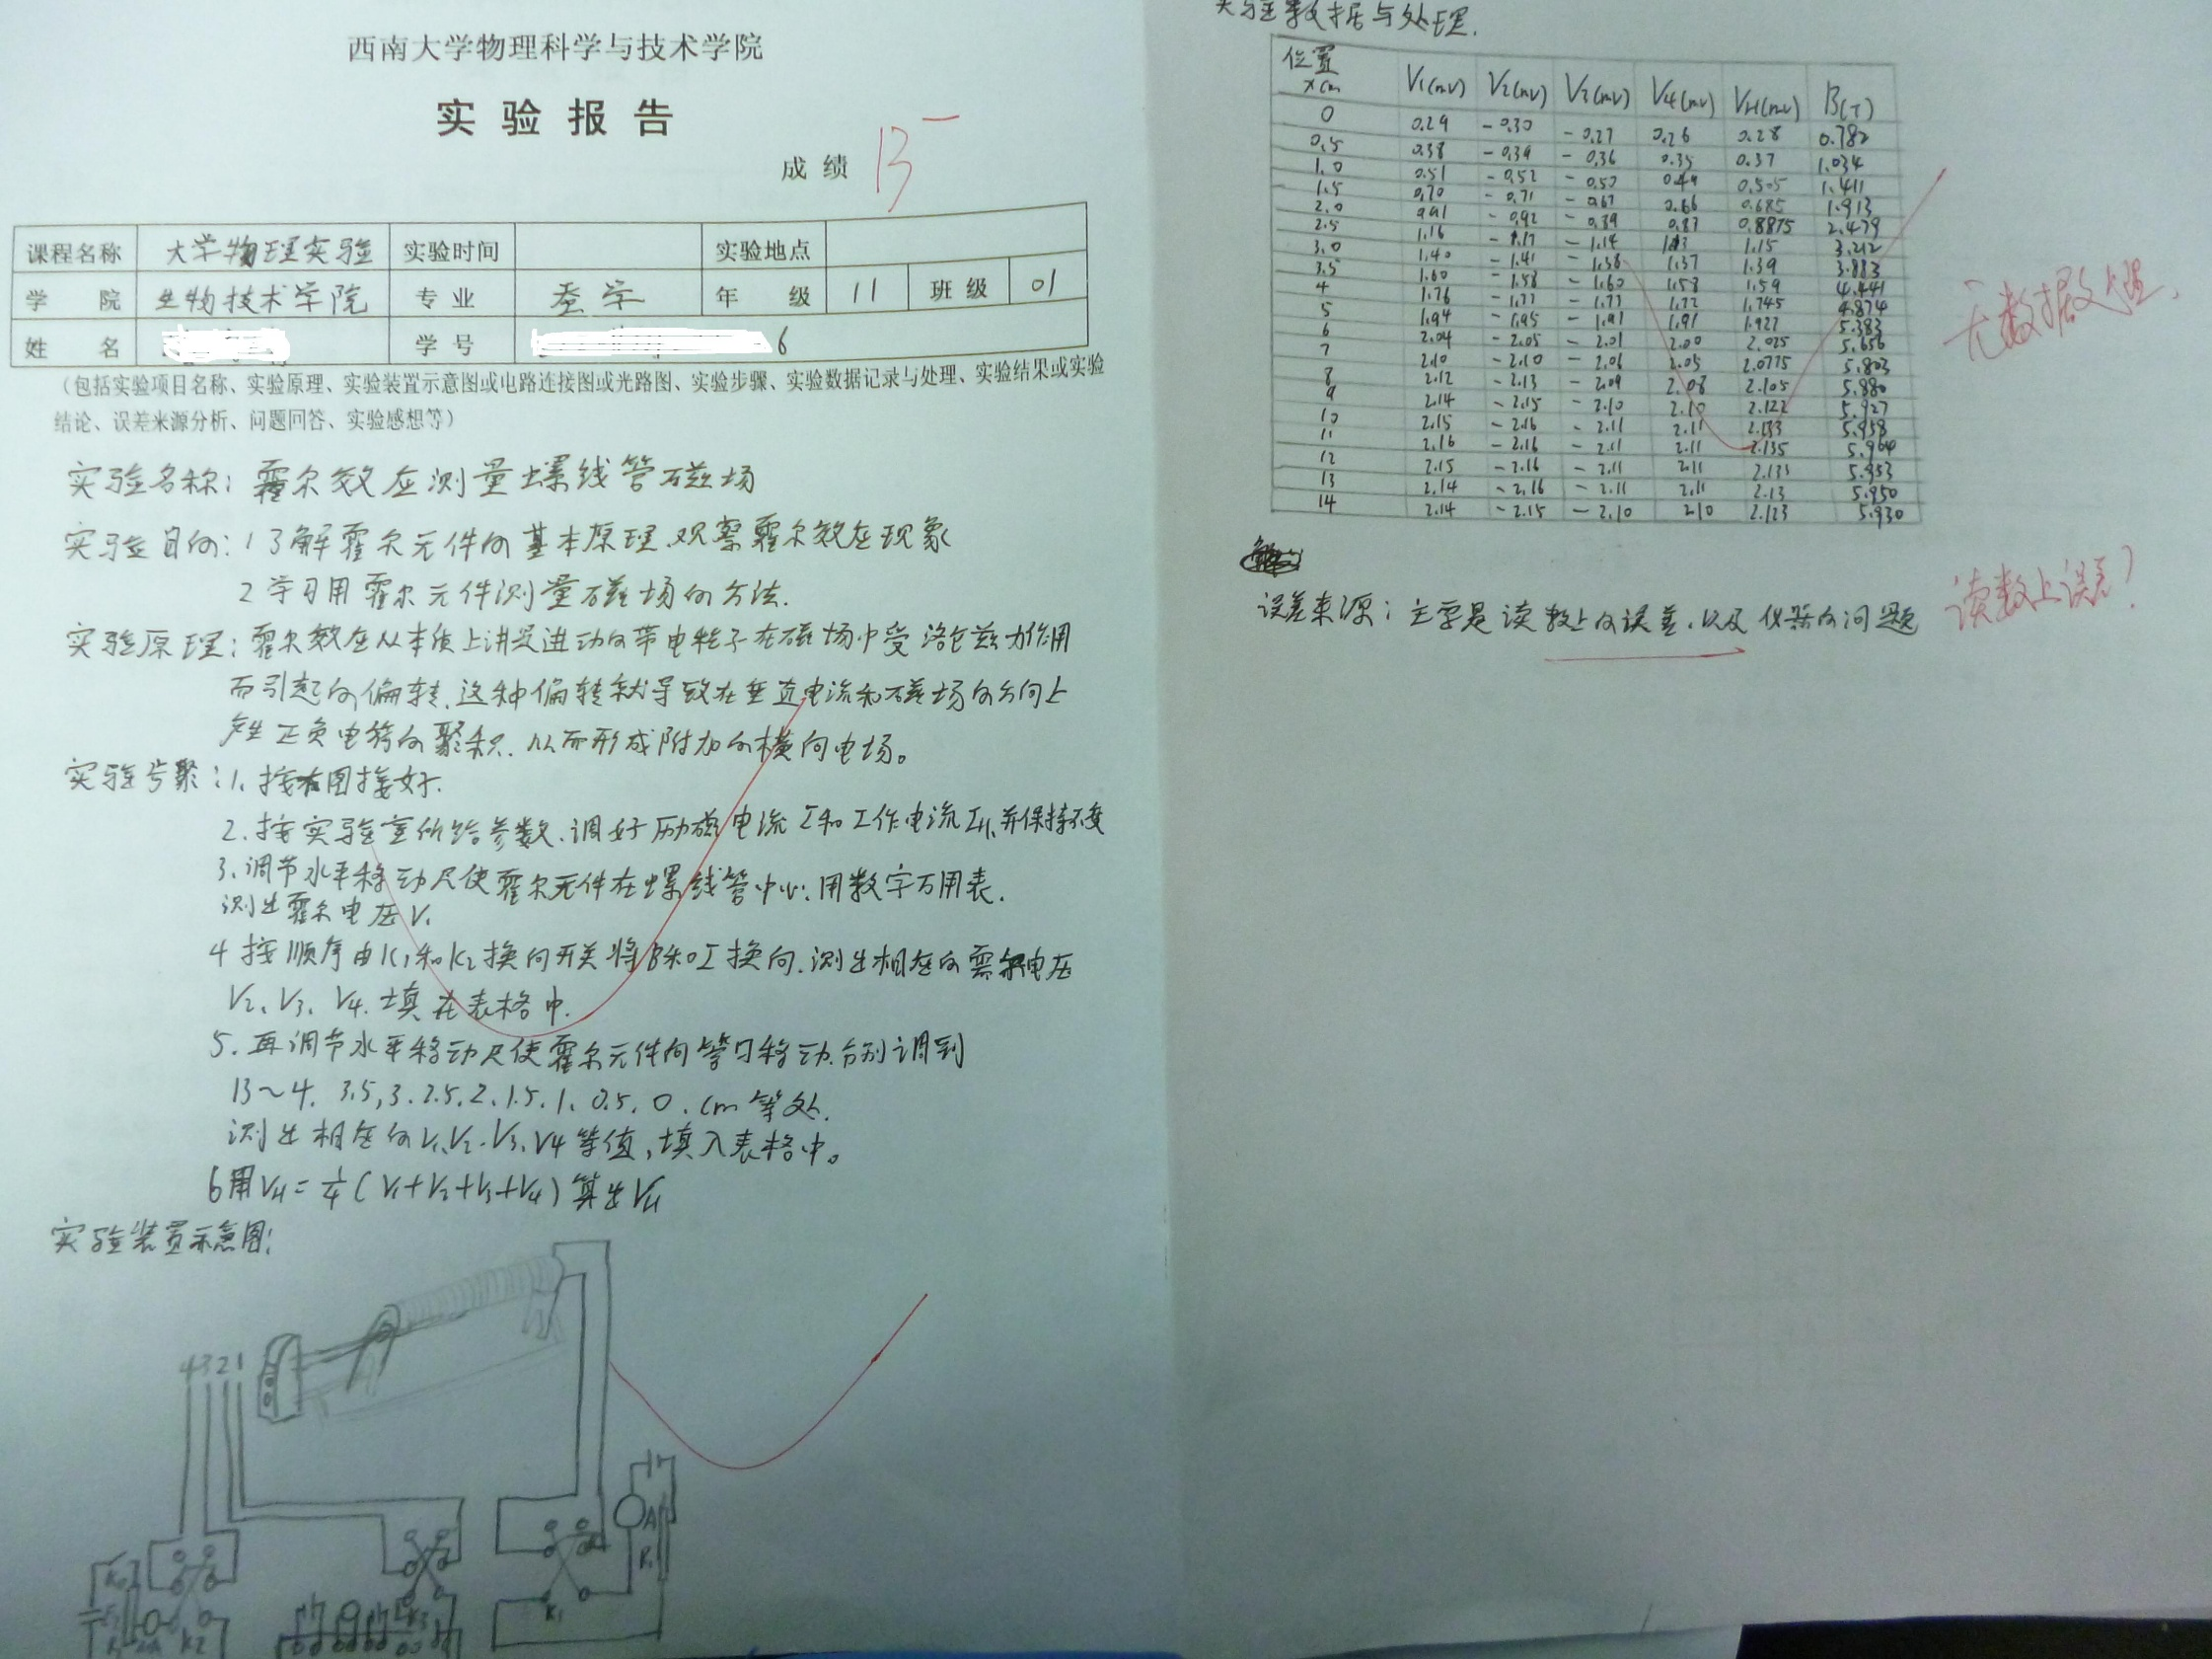 西南大学物理科学与技术学院
实验报告
成绩 B-
课程名称 大学物理实验 实验时间 实验地点
学院 生物技术学院 专业 蚕学 年级 11 班级 01
姓名 学号 6
(包括实验项目名称、实验原理、实验装置示意图或电路连接图或光路图、实验步骤、实验数据记录与处理、实验结果或实验
结论、误差来源分析、问题回答、实验感想等)
实验名称:霍尔效应测量螺线管磁场
实验目的:1了解霍尔元件的基本原理、观察霍尔效应现象
2学习用霍尔元件测量磁场的方法.
实验原理:霍尔效应从本质上讲是运动的带电粒子在磁场中受洛仑兹力作用
而引起的偏转.这种偏转就导致在垂直电流和磁场的方向上
产生正负电荷的聚积.从而形成附加的横向电场。
实验步聚:1.按右图接好.
2.按实验室所给参数.调好励磁电流I和工作电流IH,并保持不变
3.调节水平移动尺使霍尔元件在螺线管中心:用数字万用表.
测出霍尔电压V1
4按顺序由K1和K2换向开关将B和I换向.测出相应的霍尔电压
V2、V3、V4.填在表格中.
5.再调节水平移动尺使霍尔元件向管口移动.分别调到
13~4. 3.5,3.2.5.2.1.5.1、0.5.0.cm等处.
测出相应的V1、V2.V3、V4等值,填入表格中。
6用VH=1/4(V1+V2+V3+V4)算出VH
实验装置示意图:
4321
A
R1
K1
K2
K3
实验数据与处理.
位置 xcm V1(mv) V2(mv) V3(mv) V4(mv) VH(mv) B(T)
0 0.29 -0.30 -0.27 0.26 0.28 0.782
0.5 0.38 -0.39 -0.36 0.35 0.37 1.034
1.0 0.51 -0.52 -0.50 0.49 0.505 1.411
1.5 0.70 -0.71 -0.67 0.66 0.685 1.913
2.0 0.91 -0.92 -0.89 0.87 0.8875 2.479
2.5 1.16 -1.17 -1.14 1.13 1.15 3.212
3.0 1.40 -1.41 -1.38 1.37 1.39 3.883
3.5 1.60 -1.58 -1.60 1.58 1.59 4.441
4 1.76 -1.77 -1.73 1.72 1.745 4.874
5 1.94 -1.95 -1.91 1.91 1.927 5.383
6 2.04 -2.05 -2.01 2.00 2.025 5.656
7 2.10 -2.10 -2.06 2.05 2.0775 5.803
8 2.12 -2.13 -2.09 2.08 2.105 5.880
9 2.14 -2.15 -2.10 2.10 2.122 5.927
10 2.15 -2.16 -2.11 2.11 2.133 5.958
11 2.16 -2.16 -2.11 2.11 2.135 5.964
12 2.15 -2.16 -2.11 2.11 2.131 5.953
13 2.14 -2.16 -2.11 2.11 2.13 5.950
14 2.14 -2.15 -2.10 2.10 2.123 5.930
无数据处理.
误差来源:主要是读数上的误差.以及仪器的问题
读数上误差?